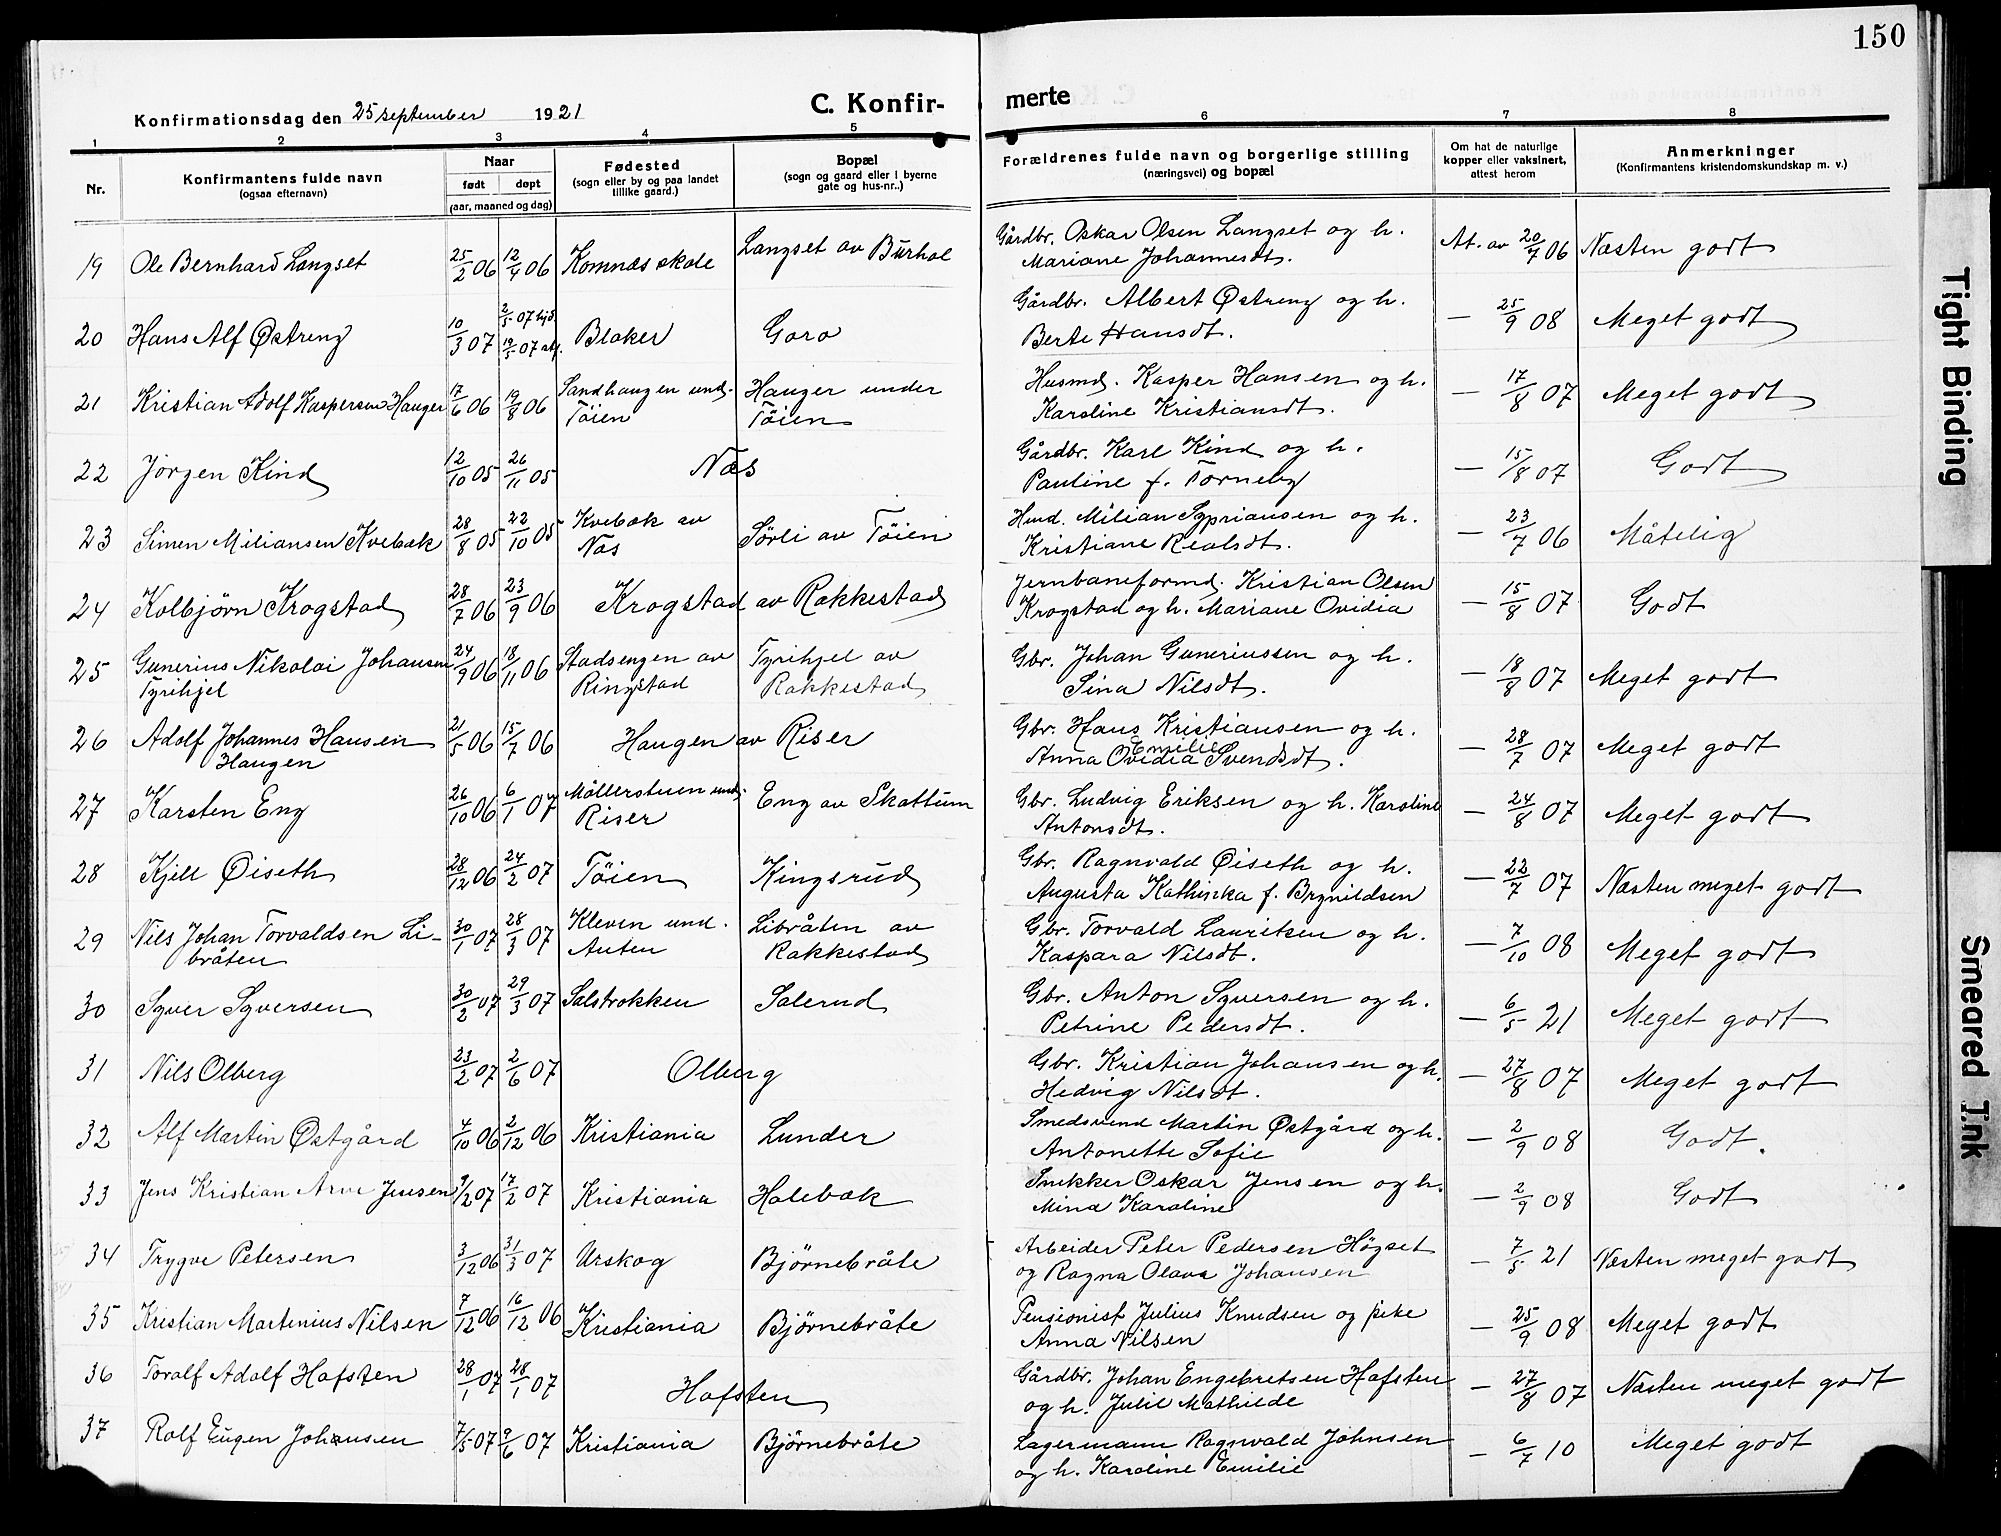 150
Konfirmationsdag den 25 september 1921
C. Konfir-
merte
1 2 3 4 5 6 7 8
Nr.
Konfirmantens fulde navn
(ogsaa efternavn)
Naar
født døpt
(aar, maaned og dag)
Fødested
(sogn eller by og paa landet
tillike gaard.)
Bopæl
(sogn og gaard eller i byerne
gate og hus-nr..)
Forældrenes fulde navn og borgerlige stilling
(næringsvei) og bopæl
Om hat de naturlige
kopper eller vaksinert,
attest herom
Anmerkninger
(Konfirmantens kristendomskundskap m. v.)
19 Ole Bernhard Langset 25/2 06 12/4 06 Komnæs skole Langset av Burhol Gårdbr. Oskar Olsen Langset og h. At. av 20/7 06 Næsten godt
Mariane Johannesdt.
20 Hans Alf Østreng 10/3 07 2/5 07 hjd. 19/5 07 Blaker Goro Gårdbr. Albert Østreng og h. — 25/9 08 Meget godt
Berte Hansdt.
21 Kristian Adolf Kaspersen Hauger 17/6 06 19/8 06 Sandhaugen und. Hauger under Husmd. Kasper Hansen og h. — 17/8 07 Meget godt
Tøien Tøien Karoline Kristiansdt.
22 Jörgen Kind 12/10 05 26/11 05 Næs Gårdbr. Karl Kind og h. — 15/8 07 Godt
Pauline f. Torneby
23 Simen Miliansen Kvebæk 28/8 05 22/10 05 Kvebæk av Sørli av Tøien Hmd. Milian Sypriansen og h. — 23/7 06 Måtelig
Næs Kristiane Realsdt.
24 Kolbjørn Krogstad 28/7 06 23/9 06 Krogstad av Rakkestad Jernbaneformd. Kristian Olsen — 15/8 07 Godt
Krogstad og h. Mariane Ovidia
25 Gunerius Nikolai Johansen 24/9 06 18/11 06 Stadsengen av Tyrihjel av Gbr. Johan Guneriussen og h. — 18/8 07 Meget godt
Tyrihjel Ringstad Rakkestad Sina Nilsdt.
26 Adolf Johannes Hansen 21/5 06 15/7 06 Haugen av Riser Gbr. Hans Kristiansen og h. — 28/7 07 Meget godt
Haugen Anna Ovidia Emilie Svendsdt.
27 Karsten Eng 26/10 06 6/1 07 Møllerstuen und. Eng av Skattum Gbr. Ludvig Eriksen og h. Karoline — 24/8 07 Meget godt
Riser Antonsdt.
28 Kjell Øiseth 28/12 06 24/2 07 Tøien Kingsrud Gbr. Ragnvald Øiseth og h. — 22/7 07 Næsten meget godt
Augusta Kathinka f. Brynildsen
29 Nils Johan Torvaldsen Li- 30/1 07 28/3 07 Kleven und. Libråten av Gbr. Torvald Lauritsen og h. — 7/10 08 Meget godt
bråten Auten Rakkestad Kaspara Nilsdt.
30 Syver Syversen 30/2 07 29/3 07 Solstrokken Solerud Gbr. Anton Syversen og h. — 6/5 21 Meget godt
Petrine Pedersdt.
31 Nils Olberg 23/2 07 2/6 07 Olberg Gbr. Kristian Johansen og h. — 27/8 07 Meget godt
Hedvig Nilsdt.
32 Alf Martin Østgård 4/10 06 2/12 06 Kristiania Lunder Smedsvend Martin Østgård og h. — 2/9 08 Godt.
Antonette Sofie
33 Jens Kristian Arve Jensen 9/2 07 17/2 07 Kristiania Holebæk Snekker Oskar Jensen og h. — 2/9 08 Godt
Mina Karoline
34 Trygve Petersen 3/12 06 31/3 07 Urskog Bjørnebråte Arbeider Peter Pedersen Högset — 7/5 21 Næsten meget godt
og Ragna Olava Johansen
35 Kristian Martinius Nilsen 7/12 06 16/12 06 Kristiania Bjørnebråte Pensionist Julius Knudsen og pike — 25/9 08 Meget godt
Anna Nilsen
36 Toralf Adolf Hafsten 28/1 07 28/1 07 Hafsten Gårdbr. Johan Engebretsen Hafsten — 27/8 07 Næsten meget godt
og h. Julie Mathilde
37 Rolf Eugen Johansen 7/5 07 9/6 07 Kristiania Bjørnebråte Lagermann Ragnvald Johnsen — 6/7 10 Meget godt
og h. Karoline Emilie
Tight Binding
Smeared Ink